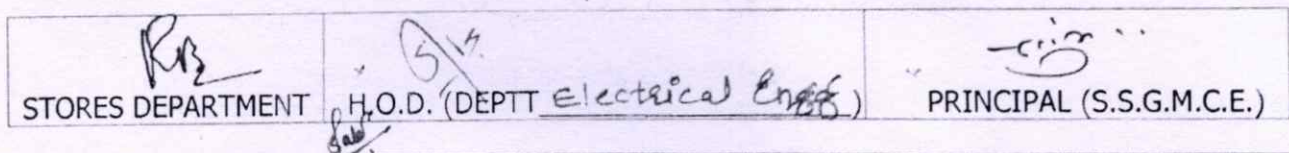 STORES DEPARTMENT
H.O.D. (DEPTT Electrical Engg)
PRINCIPAL (S.S.G.M.C.E.)